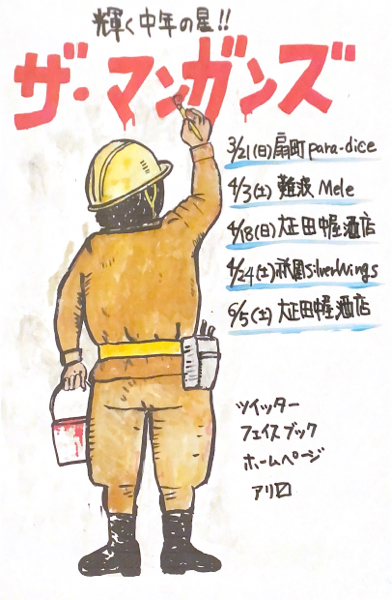 輝く中年の星!!
ザ・マンガンズ
3/21(日)扇町para-dice
4/3(土)難波 Mele
4/18(日)大正田中屋酒店
4/24(土)祇園SilverWings
6/5(土)大正田中屋酒店
ツイッター
フェイスブック
ホームページ
アリ〼